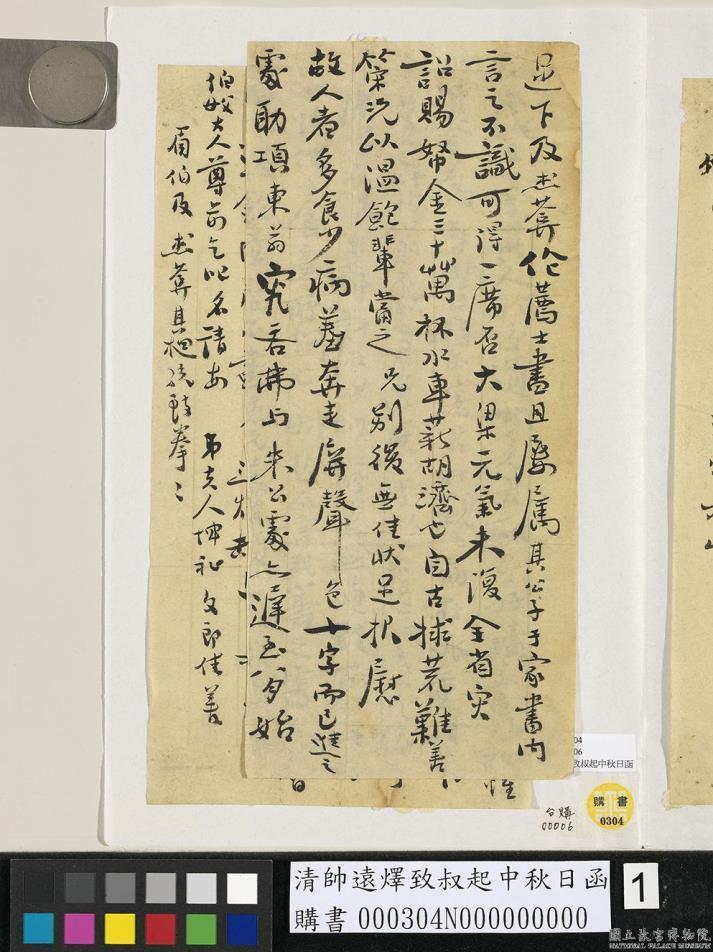 足下及杰葊作薦士書且屢属其公子于家書内
言之不識可得一席否大梁元氣未復全省灾
詔賜帑金三十萬杯水車薪胡濟也自古捄荒難善
策況以溫飽輩當之兄別後無佳狀足报慰
故人者多食少病葊奔走屏聲色十字而已
處助項東翁
与朱公處亦遲至今始
伯母大人尊前乞叱名請安 弟夫人坤祉 文郎佳善
眉伯及杰葊其
拳〻
04
06
致叔起中秋日函
台購
00006
購書
0304
清帥遠燡致叔起中秋日函
購書 000304N000000000
1
國立故宮博物院
NATIONAL PALACE MUSEUM